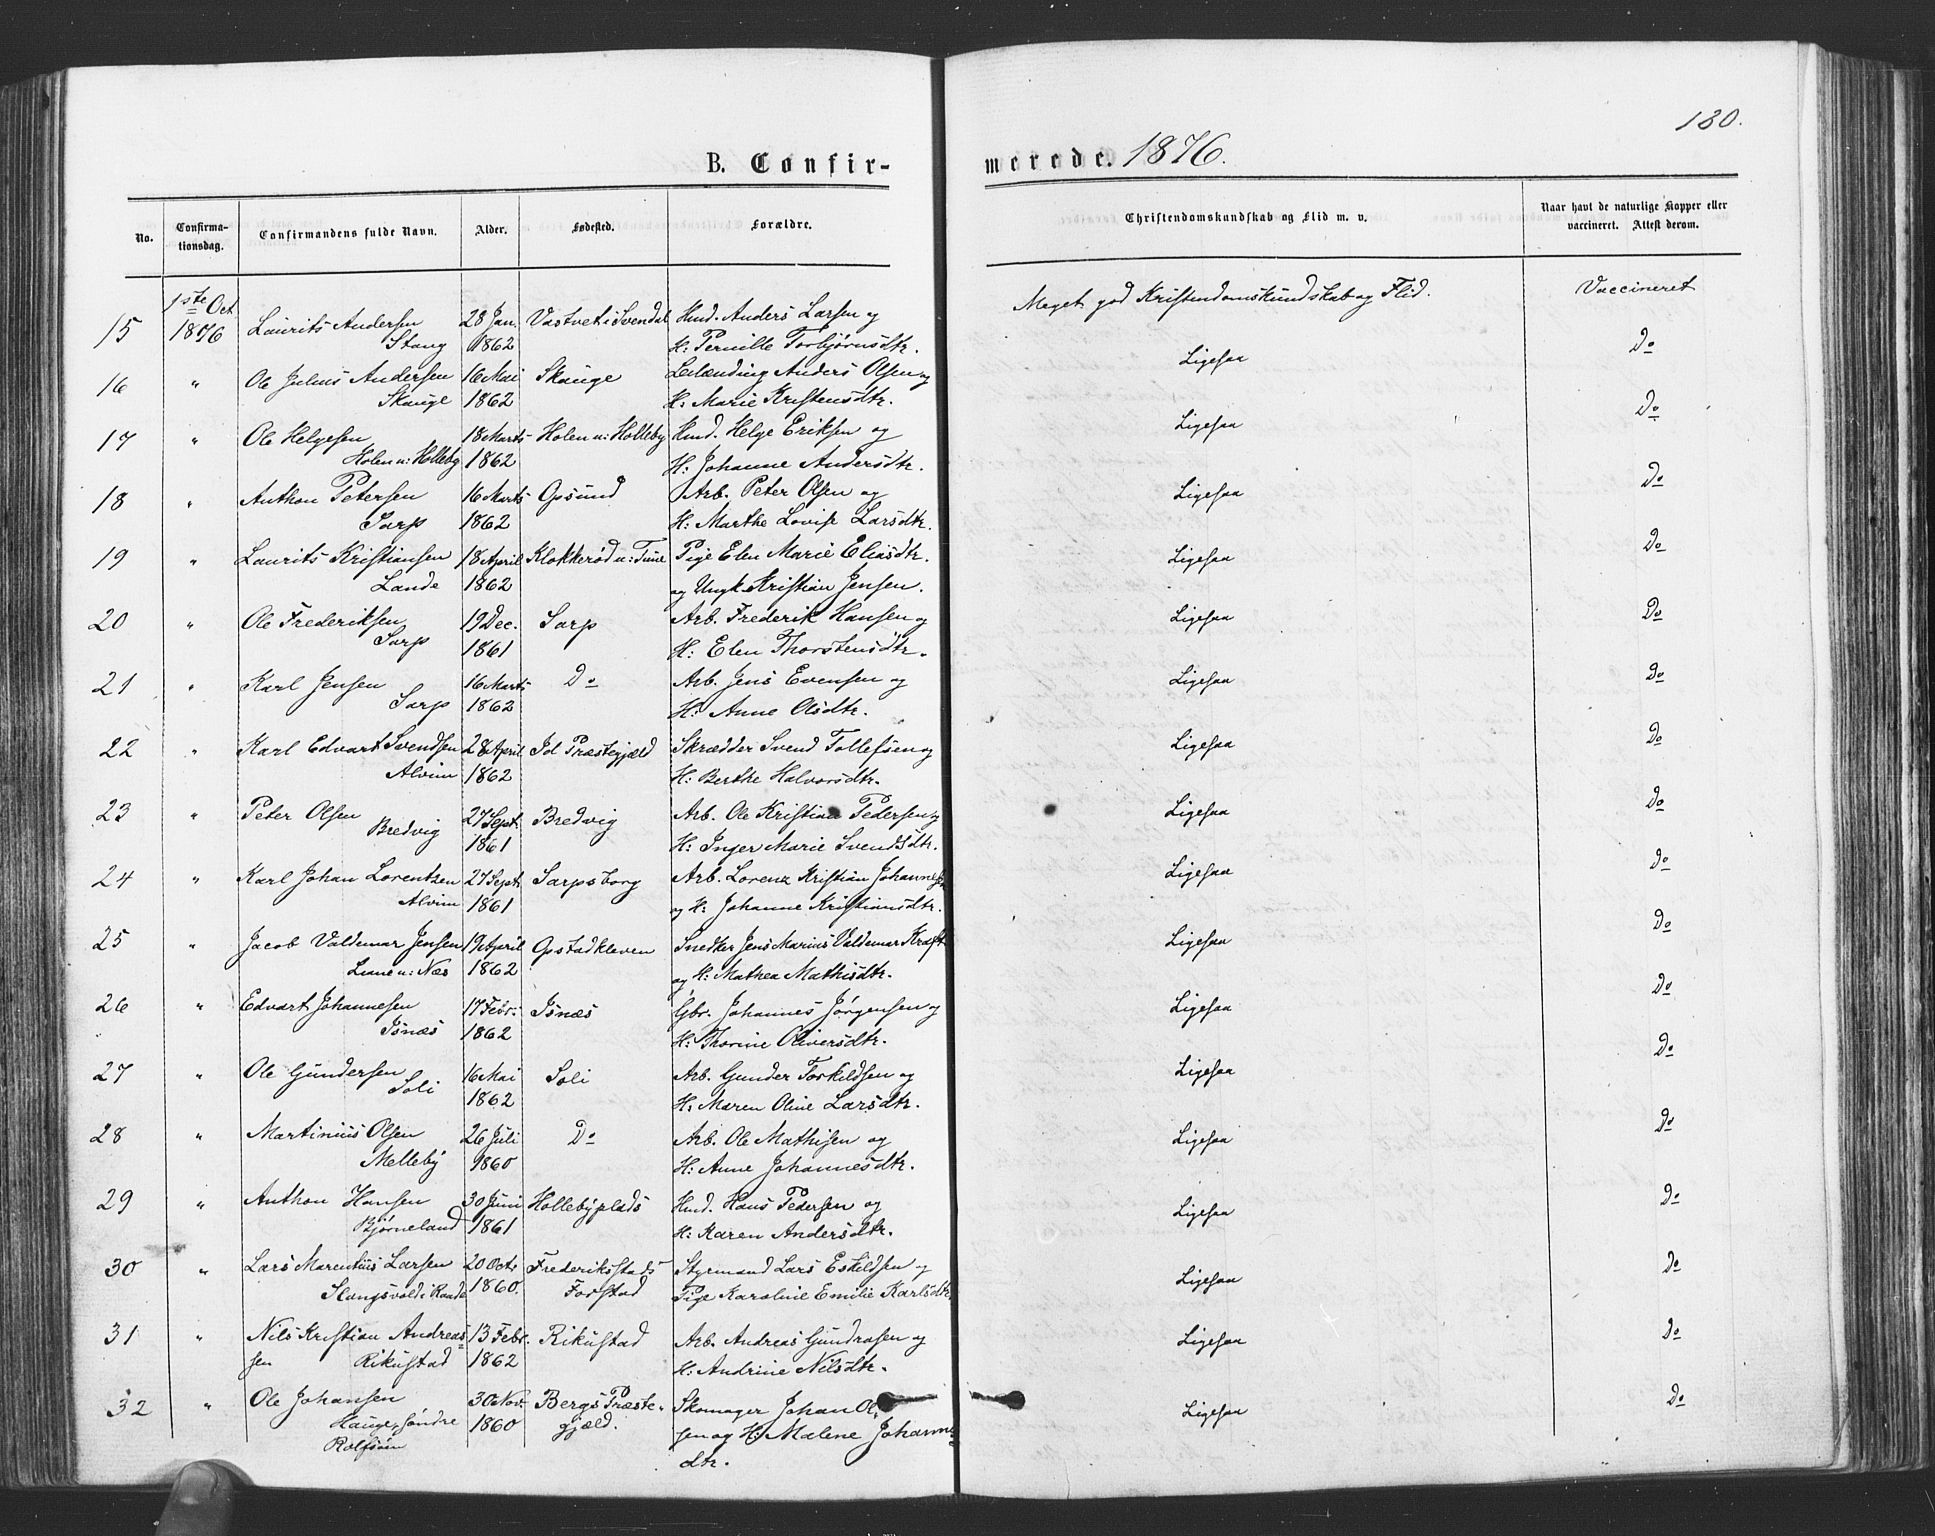 180.
B. Confir-
merede. 1876.
No.
Confirma-
tionsdag.
Confirmandens fulde Navn.
Alder.
Fødested.
Forældre.
Christendomskundskab og Flid m. v.
Naar havt de naturlige Kopper eller
vaccineret. Attest derom.
1ste Oct
15 1876 Laurits Andersen 28 Jan. Vastvet i Svendal Hmd. Anders Larsen og Meget god Kristendomskundskab og Flid. Vaccineret
Stang 1862 H: Pernille Torbjørnsdtr.
16 " Ole Julius Andersen 16 Mai Skauge Leilænding Anders Olsen og Ligesaa Do
Skauge 1862 H: Marie Kristensdtr.
17 " Ole Helgesen 18 Marts Holen u: Holleby Hmd. Helge Eriksen og Ligesaa Do
Holen u: Holleby 1862 H: Johanne Andersdtr.
18 " Anthon Petersen 16 Marts Opsund Arb. Peter Olsen og Ligesaa Do
Sarp 1862 H: Marthe Lovise Larsdtr.
19 " Laurits Kristiansen 18 April Klokkerød u: Tune Pige Elen Marie Eliasdtr. Ligesaa Do
Lande 1862 og Ungk. Kristian Jensen.
20 " Ole Frederiksen 19 Dec. Sarp Arb. Frederik Hansen og Ligesaa Do
Sarp 1861 H: Elen Thorstensdtr.
21 " Karl Jensen 16 Marts Do Arb. Jens Evensen og Ligesaa Do
Sarp 1862 H: Anne Olsdtr.
22 " Karl Edvart Svendsen 28 April Id Præstegjæld Skrædder Svend Tollefsen og Ligesaa Do
Alvim 1862 H: Berthe Halvorsdtr.
23 " Peter Olsen 27 Sept. Bredvig Arb. Ole Kristian Pedersen og Ligesaa Do
Bredvig 1861 H: Inger Marie Svendsdtr.
24 " Karl Johan Lorentzen 27 Sept. Sarpsborg Arb. Lorenz Kristian Johannes Ligesaa Do
Alvim 1861 og H: Johanne Kristiansdtr.
25 " Jacob Valdemar Jensen 19 April Opstadkleven Snedker Jens Marius Valdemar Kraft Ligesaa Do
Liane u: Næs 1862 og H: Mathea Mathisdtr.
26 " Edvart Johannesen 17 Febr. Isnæs Gbr. Johannes Jørgensen og Ligesaa Do
Isnæs 1862 H: Thorine Oliversdtr.
27 " Ole Gundersen 16 Mai Soli Arb. Gunder Torkildsen og Ligesaa Do
Soli 1862 H: Maren Oline Larsdtr.
28 " Martinius Olsen 26 Juli Do Arb. Ole Mathisen og Ligesaa Do
Melleby 1860 H: Anne Johannesdtr.
29 " Anthon Hansen 30 Juni Hollebyplads Hmd. Hans Pedersen og Ligesaa Do
Bjørneland 1861 H: Karen Andersdtr.
30 " Lars Marentius Larsen 20 Octr Frederikstads Styrmand Lars Eskildsen og Ligesaa Do
Slangsvold i Raade 1860. Forstad Pige Karoline Emilie Karlsdtr.
31 " Nils Kristian Andreas= 13 Febr. Rikustad Arb. Andreas Gundrosen og Ligesaa Do
sen Rikustad 1862 H: Andrine Nilsdtr.
32 " Ole Johansen 30 Nov. Bergs Præste- Skomager Johan Ol- Ligesaa Do
Hauge, søndre 1860 gjæld. sen og H: Malene Johannes
Rolfsøen dtr.